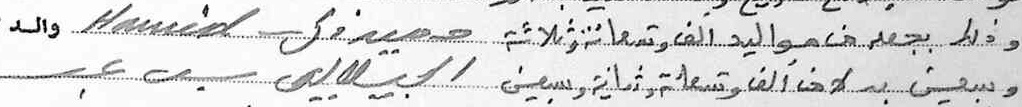 وذلك بجعله من مواليد الف وتسعمائة وثلاثة حميد في Hamid والد
وسبعين بدلا من الف وتسعمائة وثمانية وسبعين الجيلالي بن